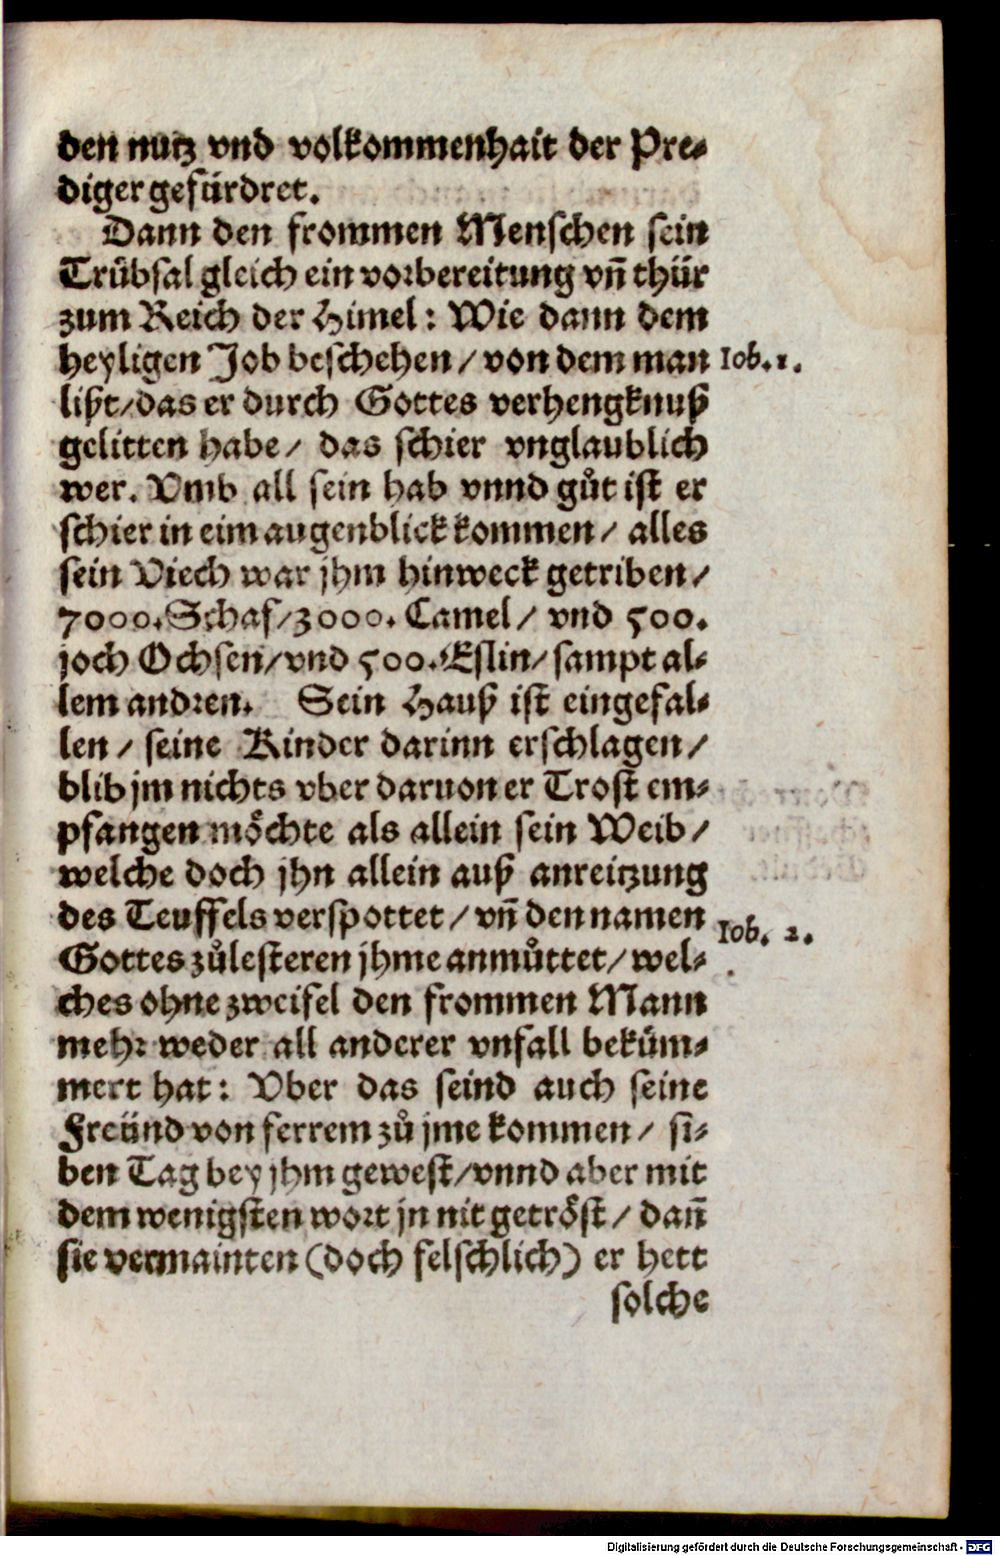 den nutz vnd volkommenhait der Pre-
diger gefürdret.
Dann den frommen Menschen sein
Trübsal gleich ein vorbereitung vñ thür
zum Reich der Himel: Wie dann dem
heyligen Job beschehen / von dem man
Iob. 1.
lißt / das er durch Gottes verhengknuß
gelitten habe / das schier vnglaublich
wer. Vmb all sein hab vnnd gůt ist er
schier in eim augenblick kommen / alles
sein Viech war jhm hinweck getriben /
7000. Schaf / 3000. Camel / vnd 500.
joch Ochsen / vnd 500. Eslin / sampt al-
lem andren. Sein Hauß ist eingefal-
len / seine Kinder darinn erschlagen /
blib jm nichts vber daruon er Trost em-
pfangen möchte als allein sein Weib /
welche doch jhn allein auß anreitzung
des Teuffels verspottet / vñ den namen
Iob. 2.
Gottes zůlesteren jhme anmůttet / wel-
ches ohne zweifel den frommen Mann
mehr weder all anderer vnfall beküm-
mert hat: Vber das seind auch seine
Freünd von ferrem zů jme kommen / si-
ben Tag bey jhm gewest / vnnd aber mit
dem wenigsten wort jn nit getröst / dañ
sie vermainten (doch felschlich) er hett
solche
Digitalisierung gefördert durch die Deutsche Forschungsgemeinschaft - DFG